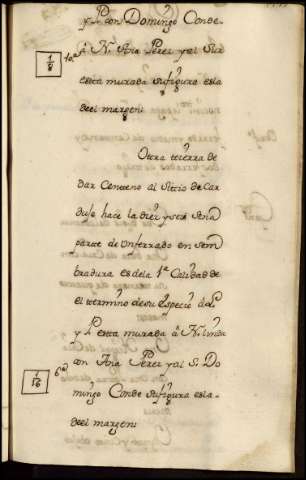 y P. con Domingo Conde
1/8 10.a â N. Ana Perez y al Sur
esta murada su figura es la
de el margen:
Otra tierra de
dar Centeno al Sitio de Car
duso hace la diez y seis
parte de un ferrado en sem
bradura es de la 1.a Calidad de
el termino de su especie
y P. esta murada â N. linda
1/16 con Ana Perez y al S. Do
mingo Conde su figura es la
de el margen: